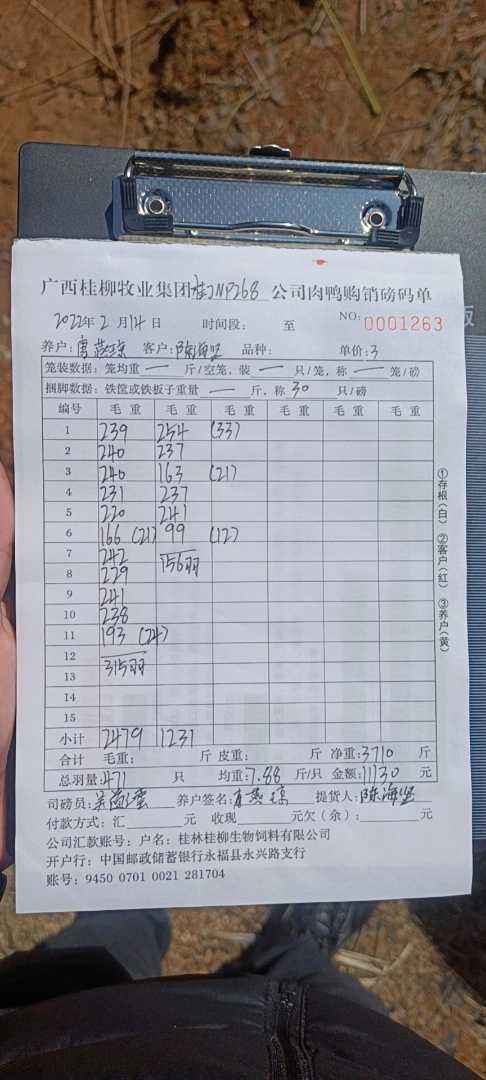 广西桂柳牧业集团桂J NP268 公司肉鸭购销磅码单
2022年 2 月 14 日 时间段： 至 NO: 0001263
养户: 客户: 陈海坚 品种: 单价: 3
笼装数据: 笼均重 — 斤/空笼，装 — 只/笼，称 — 笼/磅
捆脚数据: 铁筐或铁板子重量 — 斤，称 30 只/磅
编号 毛重 毛重 毛重 毛重 毛重 毛重
1 239 254 (33)
2 240 237
3 240 163 (21)
4 231 237
5 220 241
6 166 (21) 99 (12)
7 242 156羽
8 229
9 241
10 238
11 193 (24)
12 315羽
13
14
15
小计 2479 1231
合计 毛重: 斤 皮重: 斤 净重: 3710 斤
总羽量: 471 只 均重: 7.88 斤/只 金额: 11130 元
司磅员: 养户签名: 提货人: 陈海坚
付款方式: 汇 元 收现 元欠（余）: 元
公司汇款账号: 户名: 桂林桂柳生物饲料有限公司
开户行: 中国邮政储蓄银行永福县永兴路支行
账号: 9450 0701 0021 281704
①存根（白） ②客户（红） ③养户（黄）